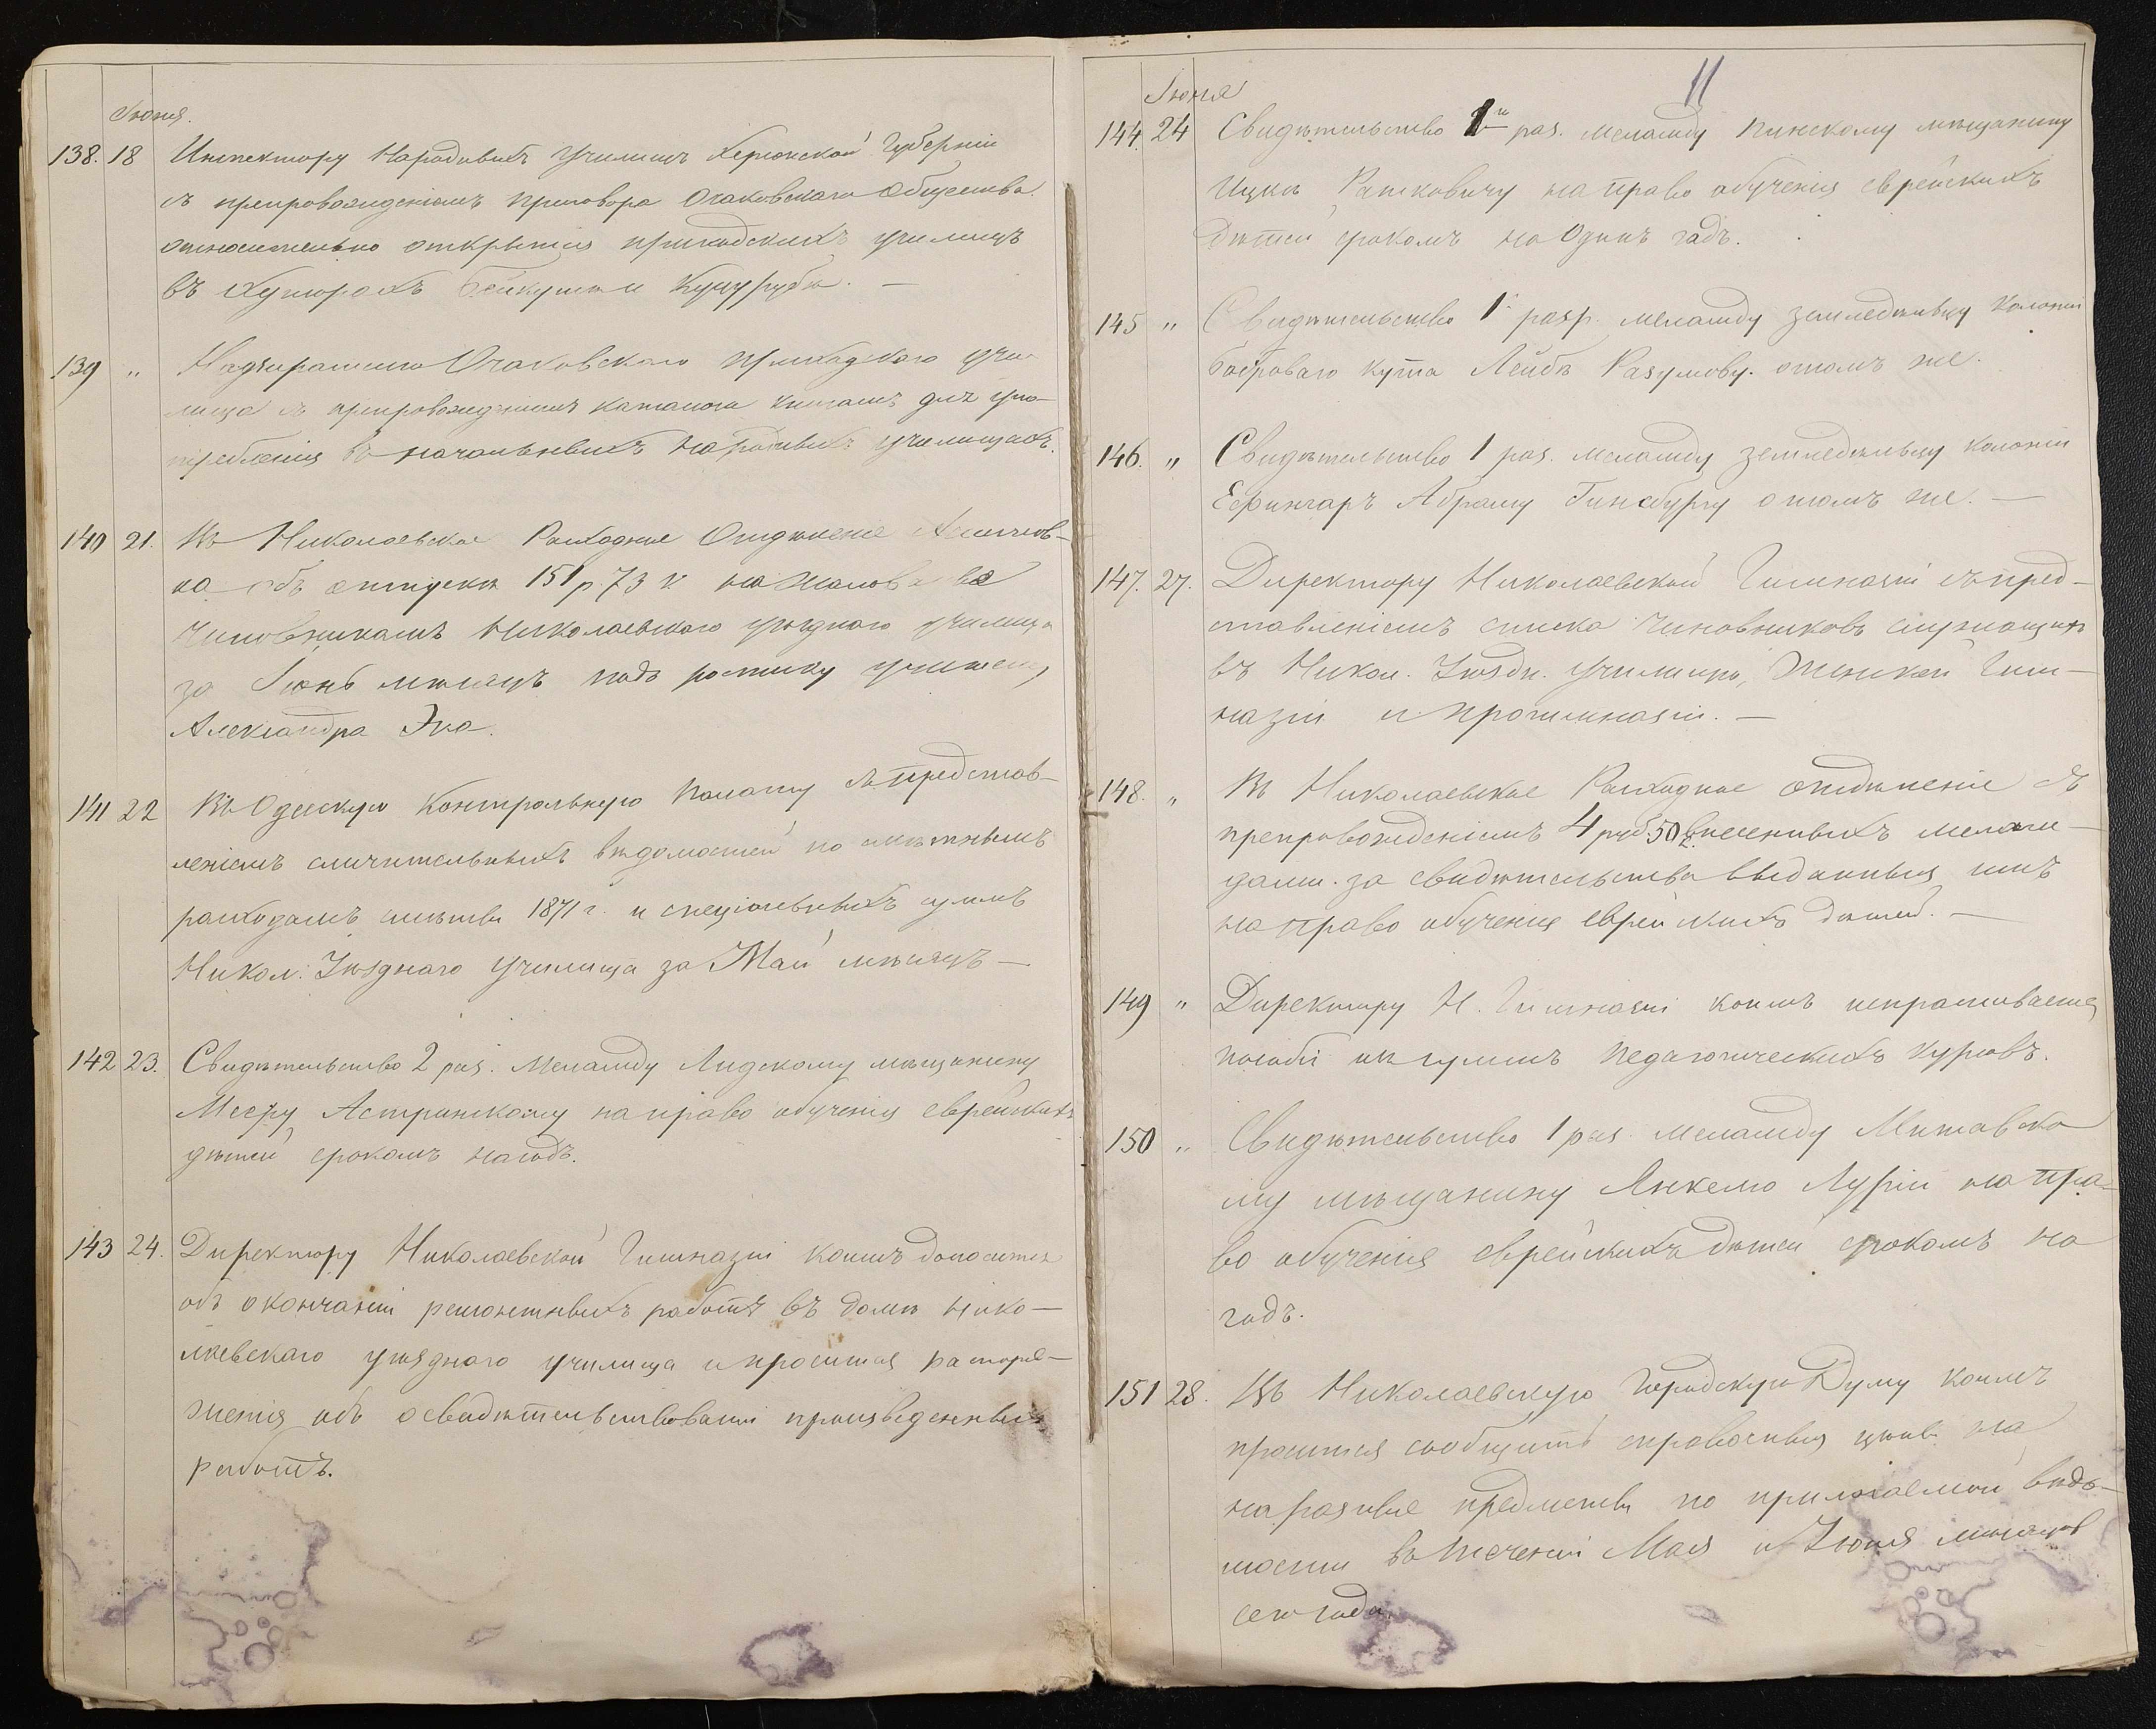 Іюня.
138. 18 Инспектору Народныхъ Училищъ Херсонской Губерніи
съ препровожденіемъ приговора Очаковскаго Общества
относительно открытія приходскихъ училищъ
въ хуторахъ Бейкушѣ и Куцурубѣ. —
139 " Надзирателю Очаковскаго приходскаго учи-
лища съ препровожденіемъ каталога книгамъ для упо-
требленія въ начальныхъ народныхъ училищахъ.
140 21. Въ Николаевское Расходное Отдѣленіе Ассигнов-
ка объ отпускѣ 151 р 73 к на жалованье
чиновникамъ Николаевскаго уѣзднаго училища
за Іюнь мѣсяцъ подъ росписку учителя
Александра Эко.
141 22 Въ Одесскую Контрольную Палату съ представ-
леніемъ сличительныхъ вѣдомостей по смѣтнымъ
расходамъ смѣты 1871 г. и спеціальныхъ суммъ
Никол. Уѣзднаго Училища за Май мѣсяцъ —
142 23. Свидѣтельство 2 раз. Меламду Лидскому мѣщанину
Мееру Астринскому на право обученія еврейскихъ
дѣтей срокомъ на годъ.
143 24. Директору Николаевской Гимназіи коимъ доносится
объ окончаніи ремонтныхъ работъ въ домѣ Нико-
лаевскаго уѣзднаго училища и просится распоря-
женія объ освидѣтельствованіи произведенныхъ
работъ.
11
Іюня
144. 24 Свидѣтельство 1го раз. меламду Пинскому мѣщанину
Ицкѣ Ратковичу на право обученія еврейскихъ
дѣтей срокомъ на Одинъ годъ.
145 " Свидѣтельство 1 разр. меламду земледѣльцу колоніи
Боброваго кута Лейбѣ Разумову. о томъ же.
146. " Свидѣтельство 1 раз. меламду земледѣльцу колоніи
Ефингаръ Абраму Гинсбургу о томъ же. —
147. 27. Директору Николаевской Гимназіи съ пред-
ставленіемъ списка чиновниковъ служащихъ
въ Никол. Уѣздн. Училищѣ, Женской Гим-
назіи и прогимназіи. —
148. " Въ Николаевское Расходное отдѣленіе съ
препровожденіемъ 4 руб 50 к. внесенныхъ мелам-
дами. за свидѣтельства выданныя имъ
на право обученія еврейскихъ дѣтей. —
149 " Директору Н. Гимназіи коимъ испрашивается
пособіе изъ суммъ педагогическихъ курсовъ.
150 " Свидѣтельство 1 раз. меламду Митавско
му мѣщанину Янкелю Лурiи на пра-
во обученія еврейскихъ дѣтей срокомъ на
годъ.
151 28. Въ Николаевскую Городскую Думу коимъ
просится сообщить справочныя цѣны на
на разные предметы по прилагаемой вѣдо-
мости въ теченіи Мая и Іюня мѣсяцовъ
сего года.